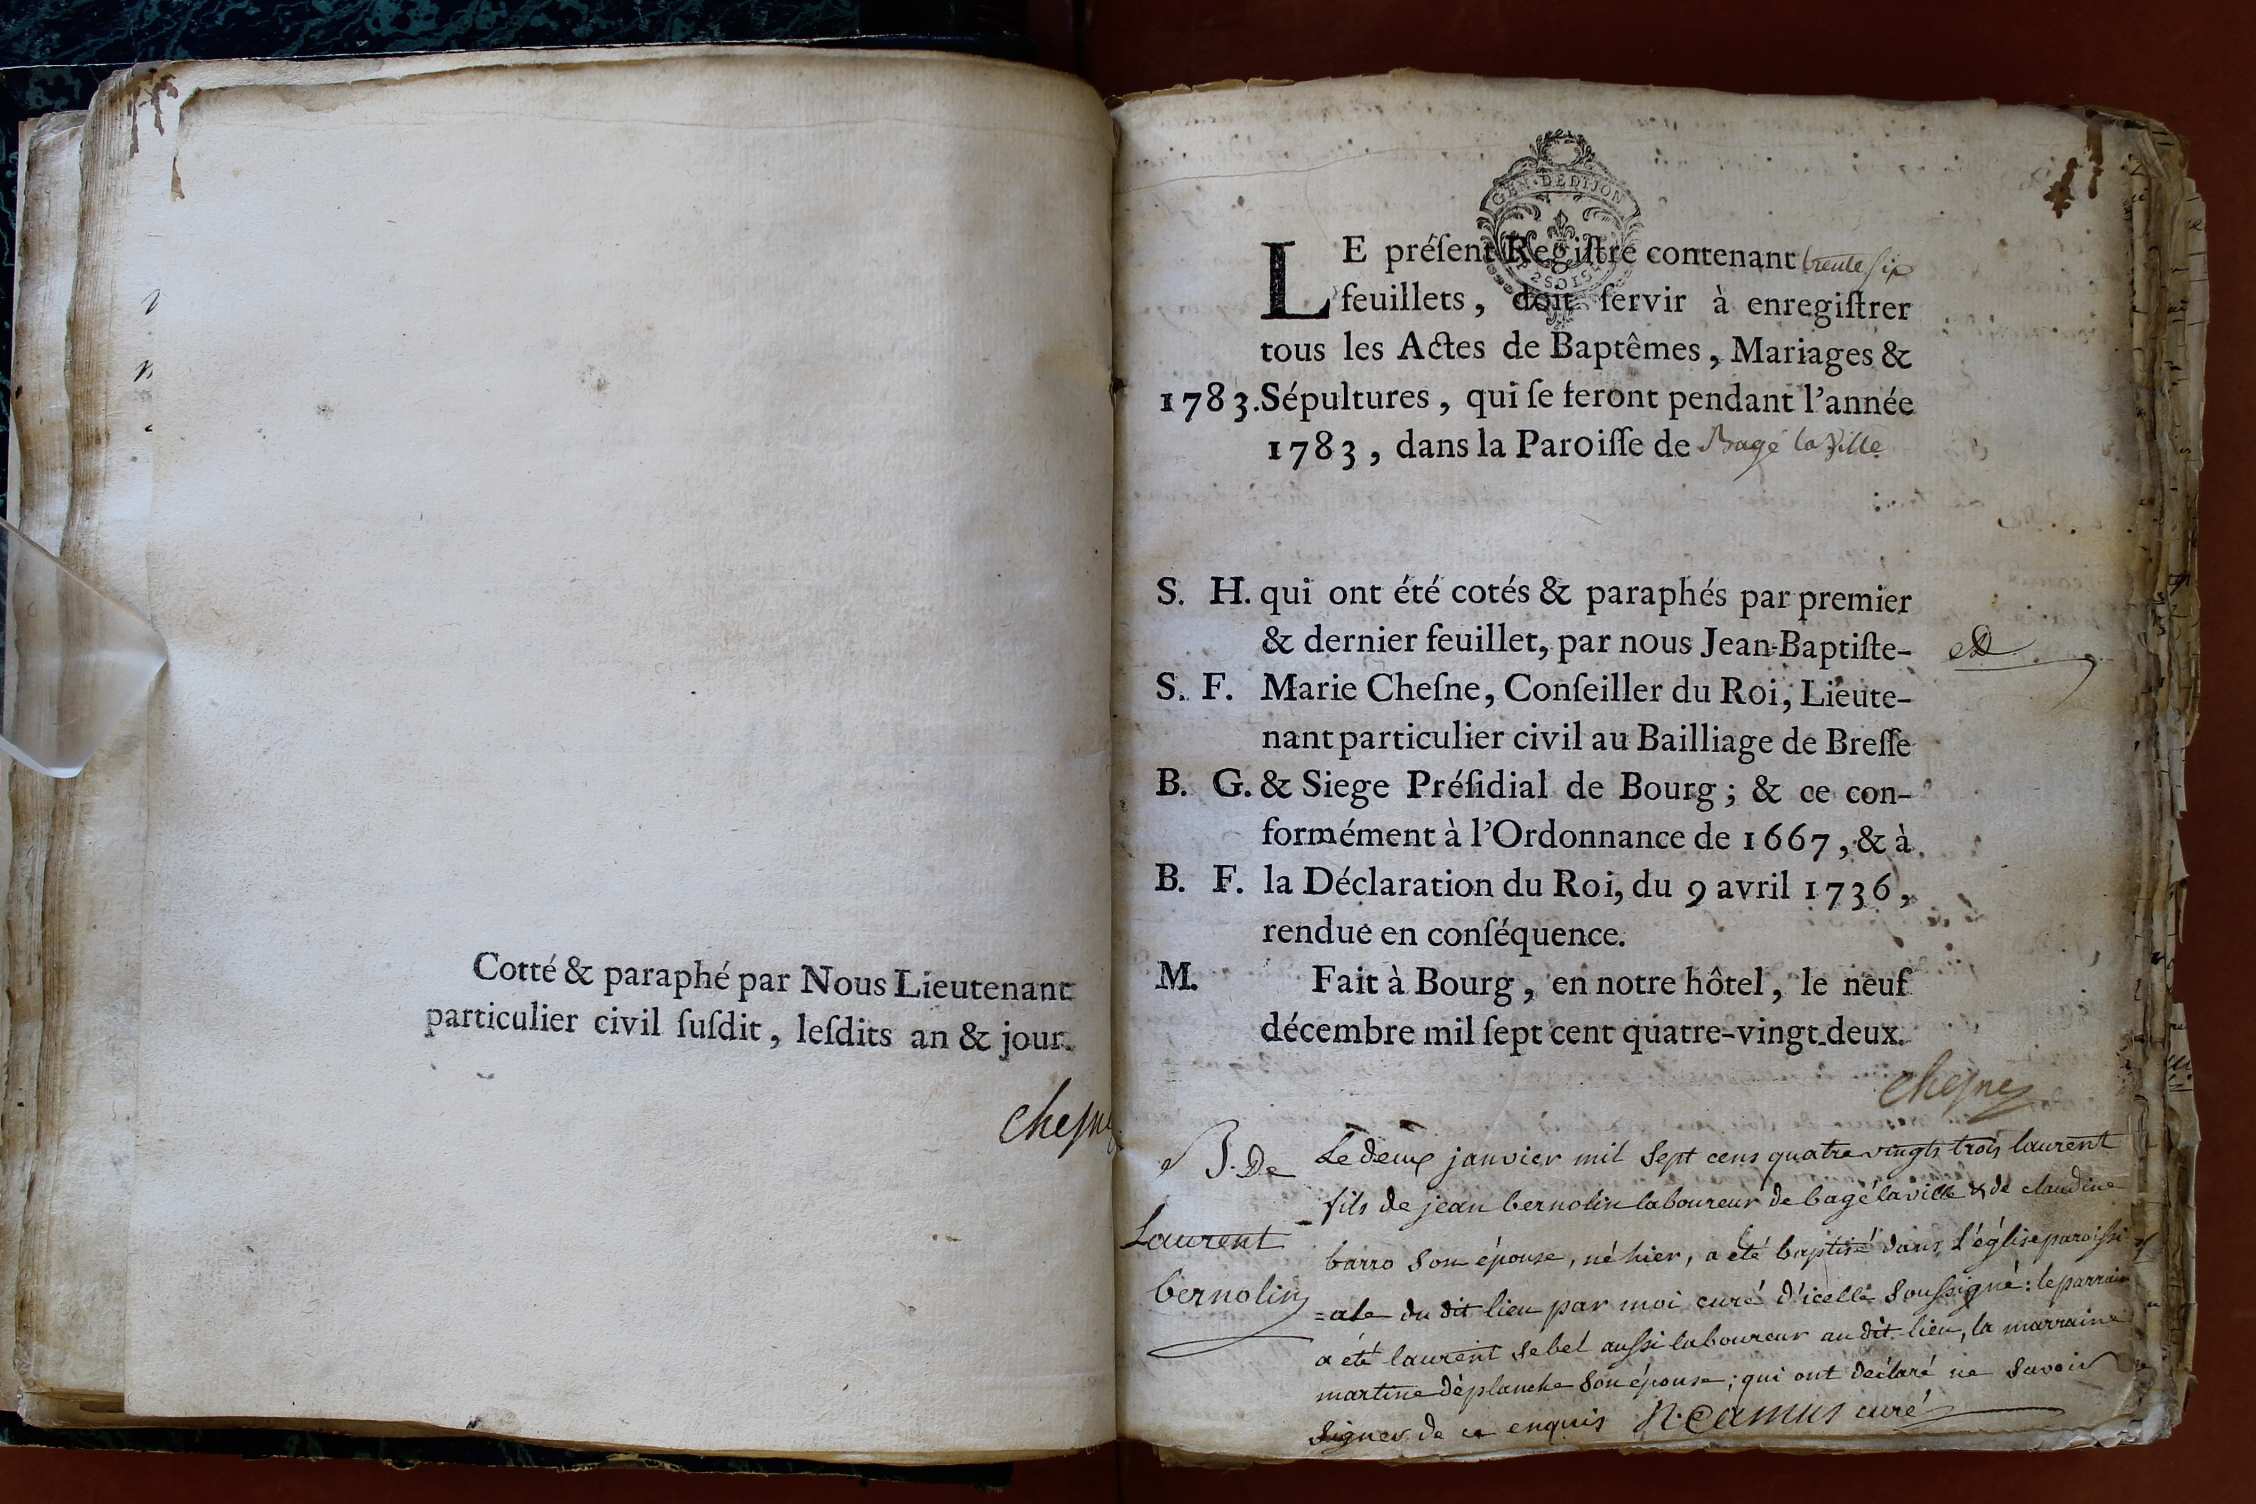 Cotté & paraphé par Nous Lieutenant
particulier civil ſuſdit, leſdits an & jour.
Chesne
GEN. DE DIJON
2 SOLS
LE préſent Regiſtre contenant trente six
feuillets, doit ſervir à enregiſtrer
tous les Actes de Baptêmes, Mariages &
1783. Sépultures, qui ſe feront pendant l'année
1783, dans la Paroiſſe de Bagé la Ville
S. H. qui ont été cotés & paraphés par premier
& dernier feuillet, par nous Jean-Baptiſte-
S. F. Marie Cheſne, Conſeiller du Roi, Lieute-
nant particulier civil au Bailliage de Breſſe
B. G. & Siege Préſidial de Bourg; & ce con-
formément à l'Ordonnance de 1667, & à
B. F. la Déclaration du Roi, du 9 avril 1736,
rendue en conſéquence.
M. Fait à Bourg, en notre hôtel, le neuf
décembre mil ſept cent quatre-vingt-deux.
Chesne
B. De
Laurent
bernolin
Le deux janvier mil sept cens quatre vingts trois laurent
fils de jean bernolin laboureur de bagé la ville & de claudine
barro son épouse, né hier, a été baptisé dans l'église paroissi
=ale du dit lieu par moi curé d'icelle soussigné: le parrain
a été laurent sebel aussi laboureur au dit lieu, la marraine
martine déplanche son épouse; qui ont déclaré ne savoir
signer de ce enquis N. Camus curé